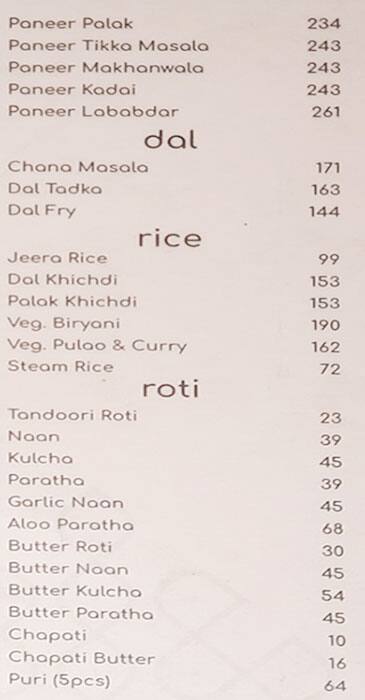 Paneer Palak 234
Paneer Tikka Masala 243
Paneer Makhanwala 243
Paneer Kadai 243
Paneer Lababdar 261
dal
Chana Masala 171
Dal Tadka 163
Dal Fry 144
rice
Jeera Rice 99
Dal Khichdi 153
Palak Khichdi 153
Veg. Biryani 190
Veg. Pulao & Curry 162
Steam Rice 72
roti
Tandoori Roti 23
Naan 39
Kulcha 45
Paratha 39
Garlic Naan 45
Aloo Paratha 68
Butter Roti 30
Butter Naan 45
Butter Kulcha 54
Butter Paratha 45
Chapati 10
Chapati Butter 16
Puri (5pcs) 64